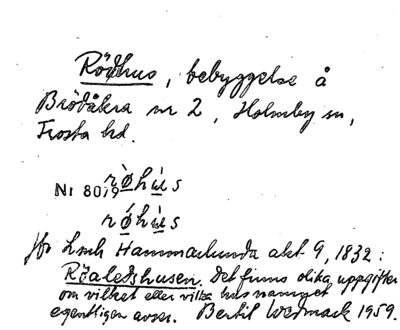 Rödhus, bebyggelse å
Brödåkra nr 2, Holmby sn,
Frosta hd.
Nr 8079 rø̀hùs
rǿhùs
Jfr Lmh Hammarlunda akt 9, 1832:
Röaledshusen. Det finns olika uppgifter
om vilket eller vilka hus namnet
egentligen avser. Bertil Wedmark 1959.